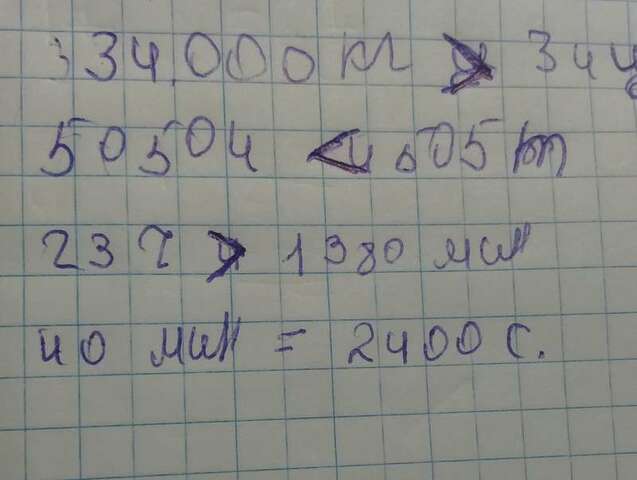 334,000 кг > 34 ц
50504 < 505 м
23 ч > 1380 мин
40 мин = 2400 с.